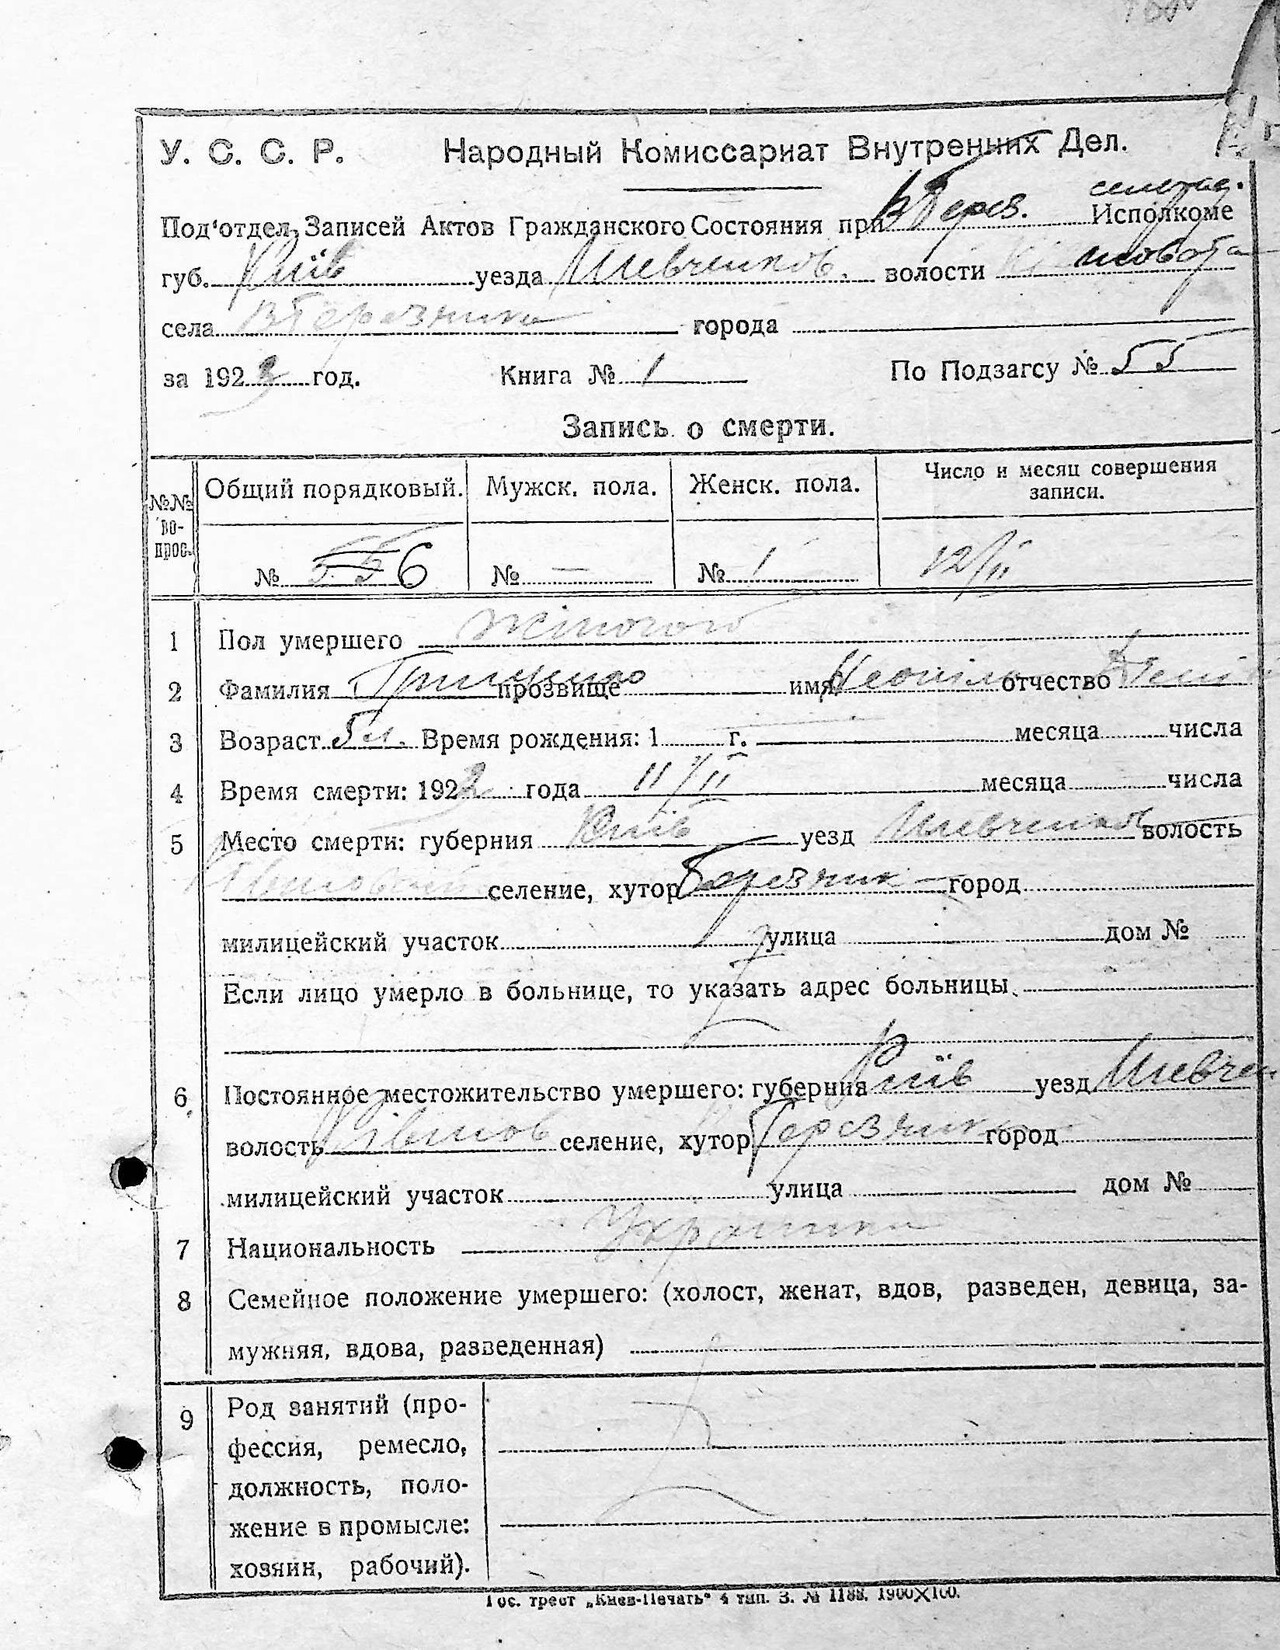 У. С. С. Р. Народный Комиссариат Внутренних Дел.
Под'отдел Записей Актов Гражданского Состояния при В Берез. сельрад. Исполкоме
губ. Київ уезда Шевченков. волости
села В Березянка города
за 1923 год. Книга № 1 По Подзагсу № 55
Запись о смерти.
№№ вопрос. Общий порядковый. Мужск. пола. Женск. пола. Число и месяц совершения записи.
№ 55 6 № — № 1 12/II
1 Пол умершего Жіночого
2 Фамилия Грищенко прозвище имя отчество
3 Возраст 5 л. Время рождения: 1 г. месяца числа
4 Время смерти: 1923 года 11/II месяца числа
5 Место смерти: губерния Київ уезд Шевченков волость
селение, хутор Березянка город
милицейский участок улица дом №
Если лицо умерло в больнице, то указать адрес больницы
6. Постоянное местожительство умершего: губерния Київ уезд Шевчен
волость селение, хутор Березянка город
милицейский участок улица дом №
7 Национальность Украинка
8 Семейное положение умершего: (холост, женат, вдов, разведен, девица, за-
мужняя, вдова, разведенная)
9 Род занятий (про-
фессия, ремесло,
должность, поло-
жение в промысле:
хозяин, рабочий).
Гос. трест „Киев-Печать" 4 тип. З. № 1188. 1900X100.